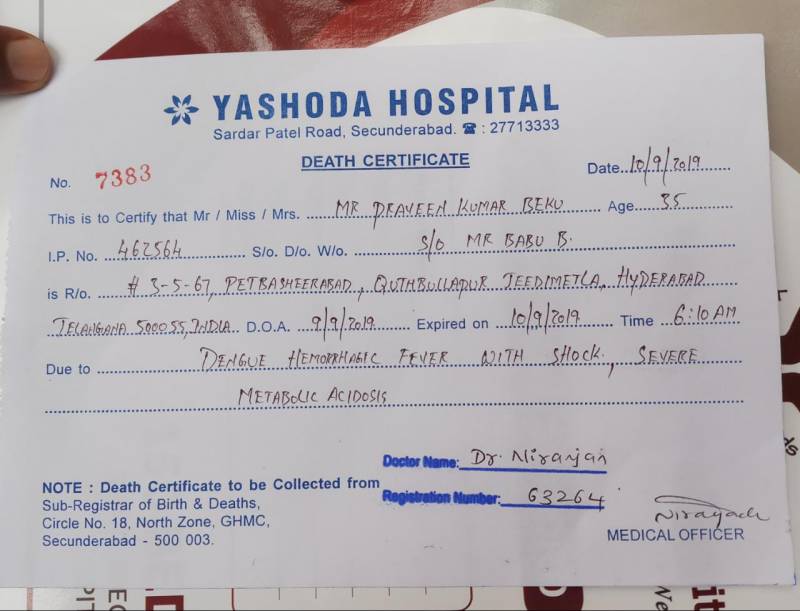 YASHODA HOSPITAL
Sardar Patel Road, Secunderabad. ☎ : 27713333
DEATH CERTIFICATE
No. 7383 Date..10/9/2019
This is to Certify that Mr / Miss / Mrs. MR PRAVEEN KUMAR BEKU Age 35
I.P. No. 462564 S/o. D/o. W/o. S/o MR BABU B.
is R/o. # 3-5-67, PETBASHEERABAD, QUTHBULLAPUR JEEDIMETLA, HYDERABAD
TELANGANA 500055, INDIA D.O.A. 9/9/2019 Expired on 10/9/2019 Time 6:10 AM
Due to DENGUE HEMORRHAGIC FEVER WITH SHOCK, SEVERE
METABOLIC ACIDOSIS
Doctor Name: Dr. Niranjan
Registration Number: 63264
NOTE : Death Certificate to be Collected from
Sub-Registrar of Birth & Deaths,
Circle No. 18, North Zone, GHMC,
Secunderabad - 500 003.
MEDICAL OFFICER